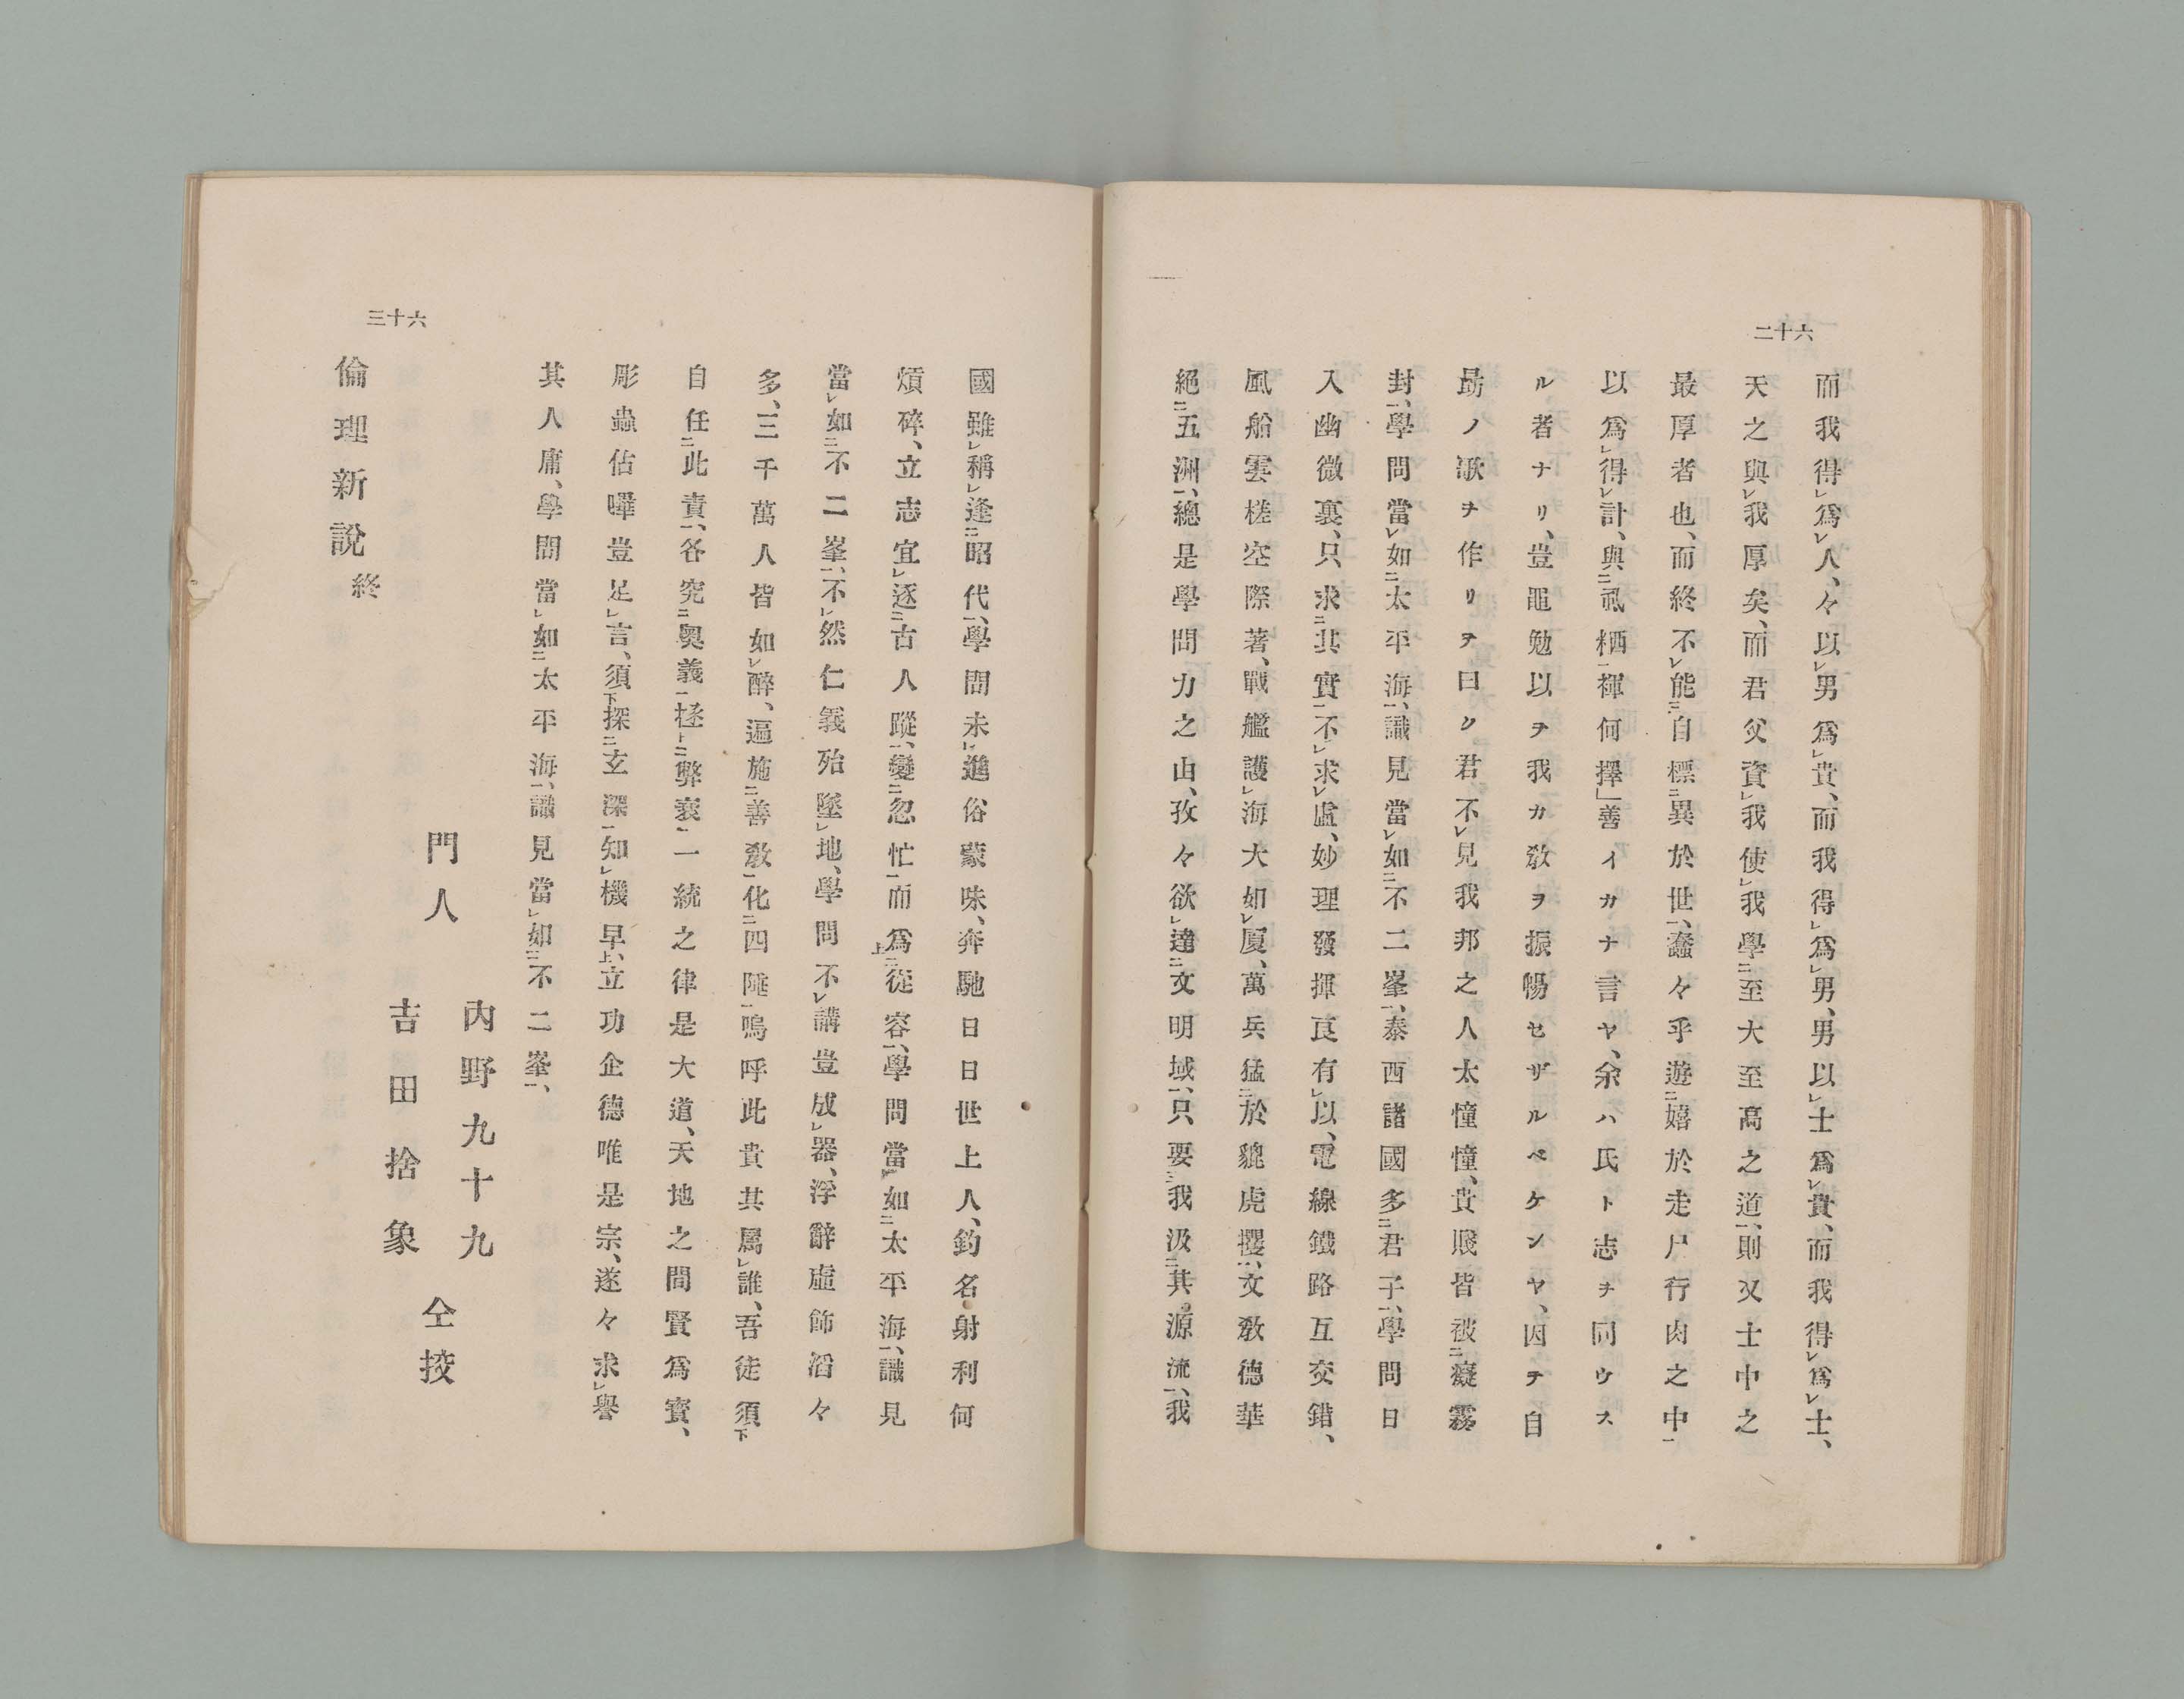 二十六
而我得㆑爲㆑人、々以㆑男爲㆑貴、而我得㆑爲㆑男、男以㆑士爲㆑貴、而我得㆑爲㆑士、
天之與㆑我厚矣、而君父資㆑我使㆑我學㆓至大至高之道㆒、則又士中之
最厚者也、而終不㆑能㆔自標㆓異於世㆒、蠢々乎遊㆓嬉於走尸行肉之中㆒
以爲㆑得㆑計、與㆓虱栖㆒褌何擇」善イカナ言ヤ、余ハ氏ト志ヲ同ウス
ル者ナリ、豈黽勉以ヲ我カ敎ヲ振暢セザルベケンヤ、因テ自
勗ノ歌ヲ作リヲ曰ク君不㆑見我邦之人太憧憧、貴賤皆被㆓癡霧
封㆒、學問當㆑如㆓太平海㆒、識見當㆑如㆓不二峯㆒、泰西諸國多㆓君子㆒、學問日
入幽微裏、只求㆓其實㆒不㆑求㆑虛、妙理發揮良有㆑以、電線鐵路互交錯、
風船雲槎空際著、戰艦護㆑海大如㆑厦、萬兵猛㆓於貔虎攫㆒、文敎德華
絕㆓五洲㆒、總是學問力之由、孜々欲㆑達㆓文明域㆒、只要㆔我汲㆓其源流㆒、我
三十六
國雖㆑稱㆑逢㆓昭代㆒、學問未㆑進俗蒙昧、奔馳日日世上人、釣名射利何
煩碎、立志宜㆑逐㆓古人蹤㆒、變㆓忽忙㆒而爲㆖㆓從容㆒、學問當㆑如㆓太平海㆒、識見
當㆑如㆓不二峯㆒、不㆑然仁義殆墜㆑地、學問不㆑講豈成㆑器、浮辭虛飾滔々
多、三千萬人皆如㆑醉、遍施㆓善敎㆒化㆓四陲㆒、嗚呼此責其屬㆑誰、吾徒須㆘
自任㆓此責㆒、各究㆓奧義㆒拯㆗㆓弊衰㆖㆒、一統之律是大道、天地之間賢爲寳、
彫蟲佔嗶豈足㆑言、須㆘探㆓玄深㆒知㆑機早㆖、立功企德唯是宗、遂々求㆑譽
其人庸、學問當㆑如㆓太平海㆒、識見當㆑如㆓不二峯㆒、
門人
內野九十九
吉田捨象
仝挍
倫理新說 終